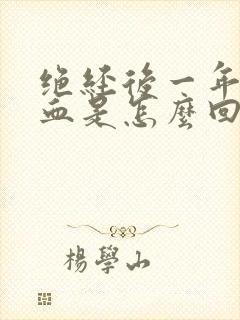 绝经後一年
血是怎麽回
楊學山